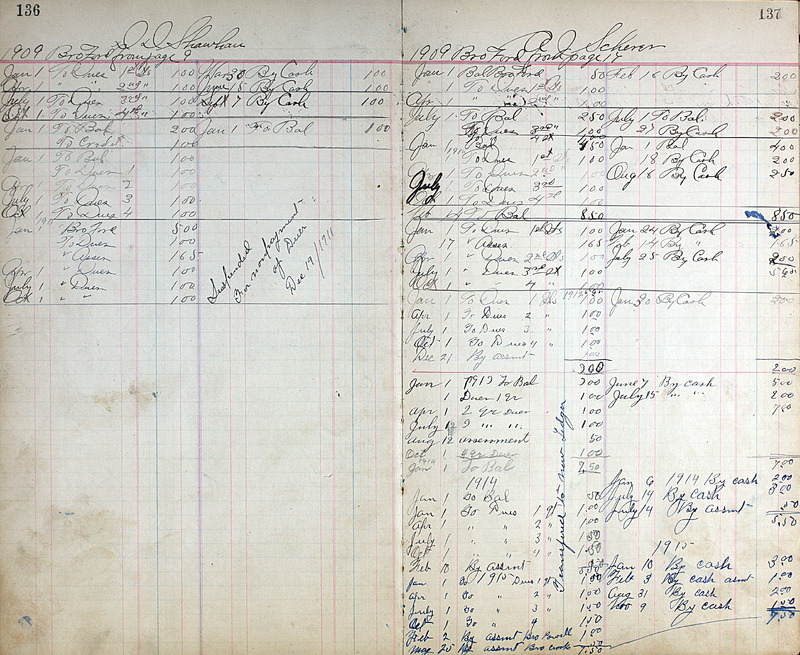 136
J D Shawhan
1909 Bro Ford from page 9
Jan 1 To Dues 1st 1 00 Mar 30 By Cash 1 00
Apr 1 2nd " 1 00 June 15 By Cash 1 00
July 1 To Dues 3rd " 1 00 Sept 7 By Cash 1 00
Oct 1 To Dues 4th " 1 00
Jan 1 To Bal 2 00 Jan 1 To Bal 1 00
To Credit 1 00
Jan 1 To Bal 1 00
To Dues 1 1 00
Apr 1 To Dues 2 1 00
July 1 To Dues 3 1 00
Oct 1 To Dues 4 1 00
Jan 1 Bro Ford 5 00
To Dues 1 00
" Assn 1 65
Apr 1 " Dues 1 00
July 1 " Dues 1 00
Oct 1 " " 1 00
Suspended
For nonpayment
of Dues
Dec 19/1911
137
J Scherer
1909 Bro Ford from page 17
Jan 1 Bal Bro Ford 50 Feb 16 By Cash 2 00
1 To Dues 1st 1 00
Apr 1 " 2nd " 1 00
July 1 To Bal 2 50 July 1 To Bal 2 50
To Dues 3rd 1 00 27 By Cash 2 00
Jan 1 Bal 4 50 Jan 1 Bal 4 00
1 To Dues 1st 1 00 18 By Cash 2 00
1 To Dues 2nd 1 00 Aug 16 By Cash 2 50
July 1 To Dues 3rd 1 00
Oct 1 To Dues 4th 1 00
To Bal 8 50 8 50
Jan 1 To Dues 1st 1 00 Jan 24 By Cash
17 " Assn 1 65 Feb 14 By " 1 65
Apr 1 " Dues 2nd 1 00 July 25 By Cash 2 00
July 1 " Dues 3rd 1 00
Oct 1 " " 4 " 1 00
Jan 1 To Dues 1 1 00 Jan 30 By Cash 2 00
Apr 1 To Dues 2 " 1 00
July 1 To Dues 3 " 1 00
Oct 1 To Dues 4 " 1 00
Dec 21 By assmt
2 00
Jan 1 1913 To Bal June 7 By cash 5 00
1 Dues 1 qr 1 00 July 15 " " 2 00
Apr 1 2 qr Dues 1 00 7 00
July 1 3 " " 1 00
Aug 12 assessment 50
Oct 1 4 qr Dues 1 00
Jan 1 To Bal 7 50 7 00
1914 Jan 6 1914 By cash 2 00
Jan 1 To Bal 50 July 14 By Cash 3 00
Jan 1 To Dues 1 qt 1 00 July 14 By assmt 50
Apr 1 " " 2 " 1 00 5 50
July 1 " " 3 " 1 50
Oct 1 " " 4 " 1 50 1915
Feb 10 By assmt Jan 10 By cash 3 00
Jan 1 To 1915 Dues 1 qt 1 00 Feb 3 By cash asmt 1 00
Apr 1 To " 2 " 1 00 Aug 31 By cash 2 00
July 1 To " 3 " 1 50 Nov 9 By cash 1 50
Oct 1 To " 4 1 50 7 50
Feb 2 By assmt Bro Powell 1 00
Mar 25 By assmt Bro Crook
7 50
Transfered to new Ledger